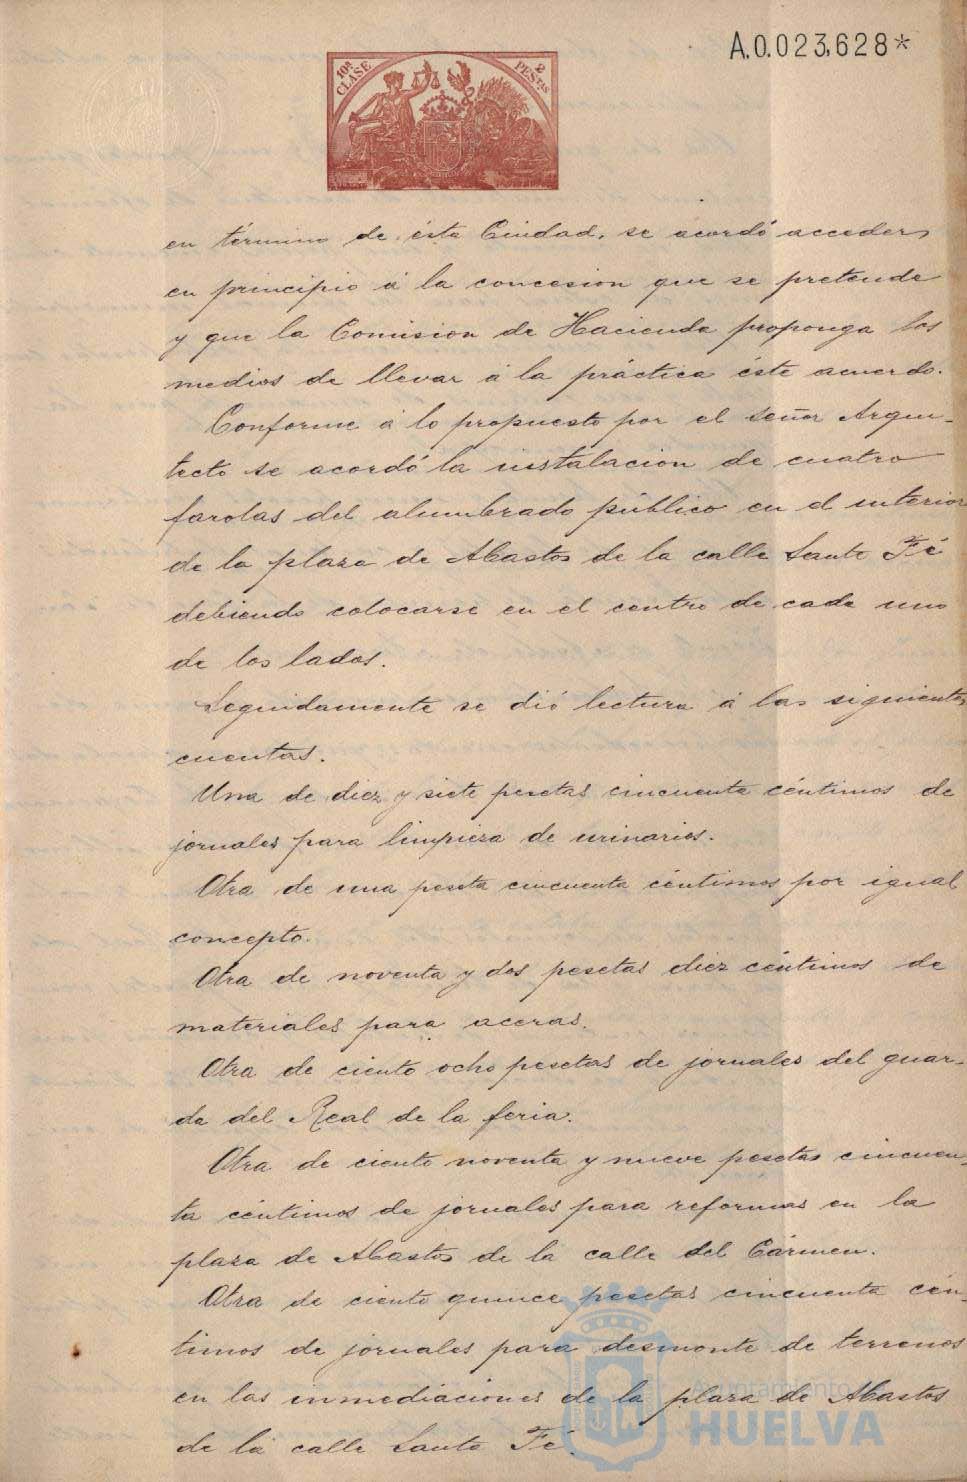 A.0.023,628*
10ª CLASE
2 PESTAS
en término de ésta Ciudad, se acordó acceder
en principio á la concesion que se pretende
y que la Comision de Hacienda proponga los
medios de llevar á la práctica éste acuerdo.
Conforme á lo propuesto por el señor Arqui-
tecto se acordó la instalacion de cuatro
farolas del alumbrado público en el interior
de la plaza de Abastos de la calle Santa Fé
debiendo colocarse en el centro de cada uno
de los lados.
Seguidamente se dió lectura á las siguientes
cuentas.
Una de diez y siete pesetas cincuenta céntimos de
jornales para limpieza de urinarios.
Otra de una peseta cincuenta céntimos por igual
concepto.
Otra de noventa y dos pesetas diez céntimos de
materiales para aceras.
Otra de ciento ocho pesetas de jornales del guar-
da del Real de la feria.
Otra de ciento noventa y nueve pesetas cincuen-
ta céntimos de jornales para reformas en la
plaza de Abastos de la calle del Cármen.
Otra de ciento quince pesetas cincuenta cén-
timos de jornales para desmonte de terrenos
en las inmediaciones de la plaza de Abastos
de la calle Santa Fé.
Ayuntamiento de
HUELVA